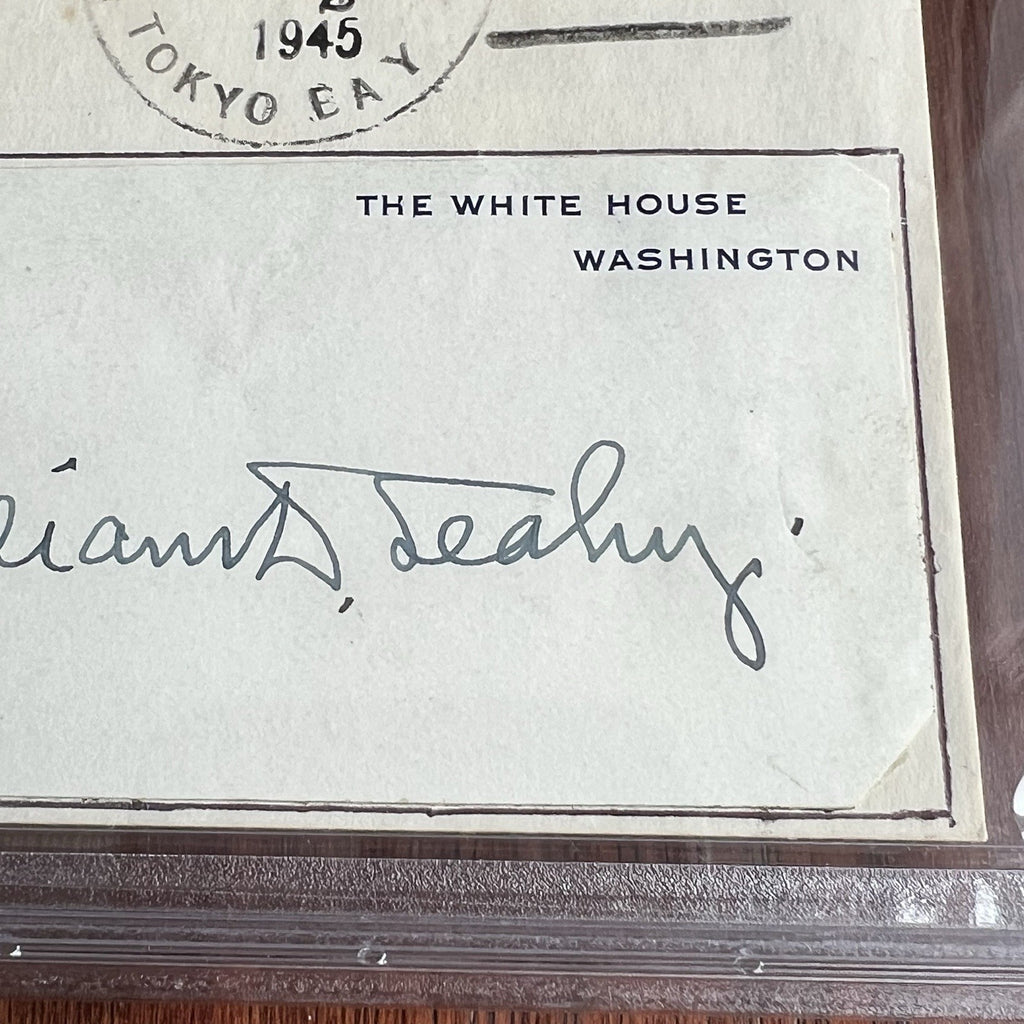 2
1945
TOKYO BAY
THE WHITE HOUSE
WASHINGTON
liam D. Leahy.